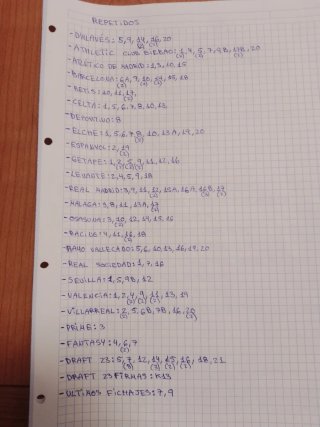 REPETIDOS
- D'ALAVÉS: 5, 9, 14, 16, 20
- ATHLETIC CLUB BILBAO: 1, 4, 5, 7, 9B, 17B, 20
- ATLÉTICO DE MADRID: 1, 3, 10, 15
- BARCELONA: 6A, 7, 10, 14, 15, 18
- BETIS: 10, 11, 17,
- CELTA: 1, 5, 6, 7, 8, 10, 13
- DEPORTIVO: 8
- ELCHE: 1, 5, 6, 7, 8, 10, 13A, 19, 20
- ESPANYOL: 2, 19
- GETAFE: 1, 2, 5, 9, 11, 12, 16
- LEVANTE: 2, 4, 5, 9, 18
- REAL MADRID: 3, 9, 11, 12, 13A, 16A, 16B, 17
- MÁLAGA: 3, 8, 11, 13A, 17
- OSASUNA: 3, 10, 12, 14, 15, 16
- RACING: 4, 11, 16, 18
- RAYO VALLECADO: 5, 6, 10, 13, 16, 19, 20
- REAL SOCIEDAD: 1, 7, 16
- SEVILLA: 1, 5, 9B, 12
- VALENCIA: 1, 2, 4, 9, 11, 13, 19
- VILLARREAL: 2, 5, 6B, 7B, 16, 20
- PRIME: 3
- FANTASY: 4, 6, 7
- DRAFT 23: 5, 7, 12, 14, 15, 16, 18, 21
- DRAFT 23 FIRMAS: K13
- ULTIMOS FICHAJES: 7, 9